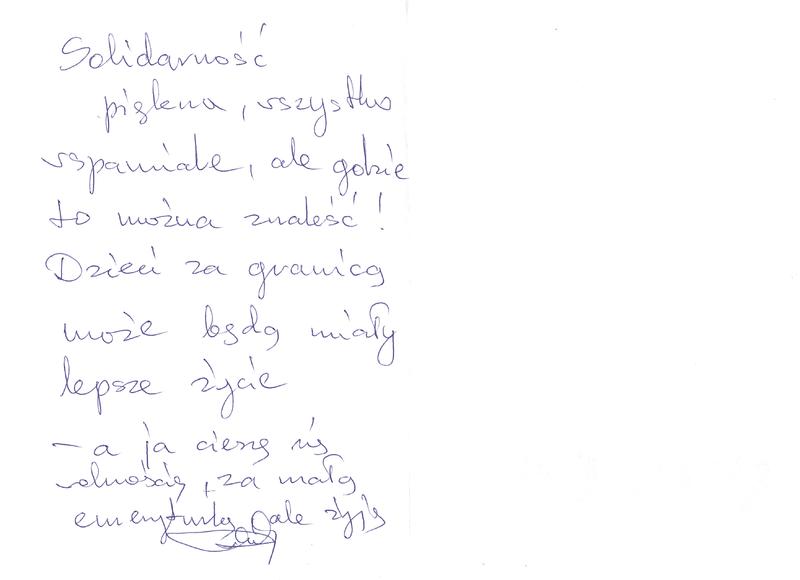 Solidarność
piękna, wszystko
wspaniałe, ale gdzie
to można znaleść!
Dzieci za granicą
może będą miały
lepsze życie
- a ja cieszę się
wolnością, za małą
emeryturką ale żyję